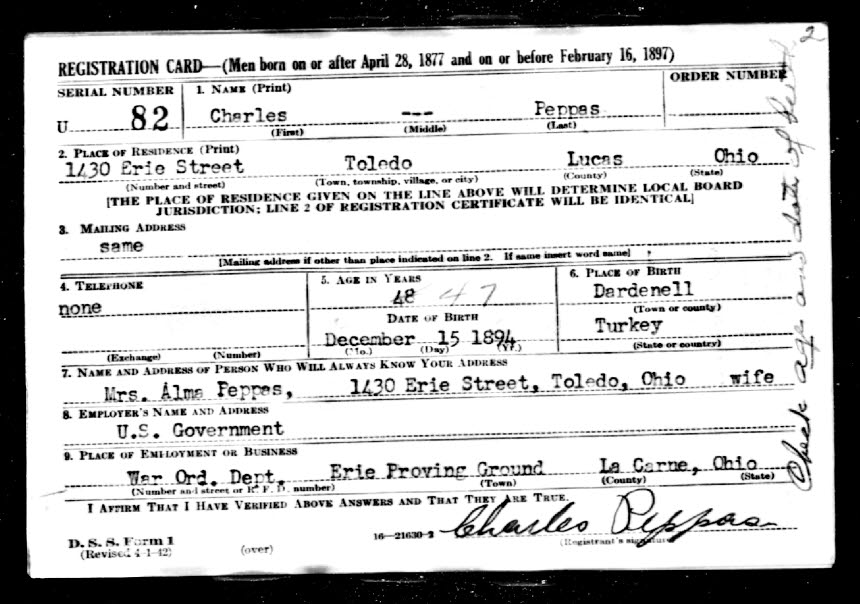 2
REGISTRATION CARD—(Men born on or after April 28, 1877 and on or before February 16, 1897)
SERIAL NUMBER
1. NAME (Print)
ORDER NUMBER
U 82
Charles --- Peppas
(First) (Middle) (Last)
2. PLACE OF RESIDENCE (Print)
1430 Erie Street Toledo Lucas Ohio
(Number and street) (Town, township, village, or city) (County) (State)
[THE PLACE OF RESIDENCE GIVEN ON THE LINE ABOVE WILL DETERMINE LOCAL BOARD
JURISDICTION; LINE 2 OF REGISTRATION CERTIFICATE WILL BE IDENTICAL]
3. MAILING ADDRESS
same
[Mailing address if other than place indicated on line 2. If same insert word same]
4. TELEPHONE
none
(Exchange) (Number)
5. AGE IN YEARS
48 47
DATE OF BIRTH
December 15 1894
(Mo.) (Day) (Yr.)
6. PLACE OF BIRTH
Dardenell
(Town or county)
Turkey
(State or country)
7. NAME AND ADDRESS OF PERSON WHO WILL ALWAYS KNOW YOUR ADDRESS
Mrs. Alma Peppas, 1430 Erie Street, Toledo, Ohio wife
8. EMPLOYER'S NAME AND ADDRESS
U.S. Government
9. PLACE OF EMPLOYMENT OR BUSINESS
War Ord. Dept. Erie Proving Ground La Carne, Ohio
(Number and street or R. F. D. number) (Town) (County) (State)
I AFFIRM THAT I HAVE VERIFIED ABOVE ANSWERS AND THAT THEY ARE TRUE.
D. S. S. Form 1
(Revised 4-1-42)
(over)
16—21630-2
Charles Peppas
(Registrant's signature)
Check age and date of birth